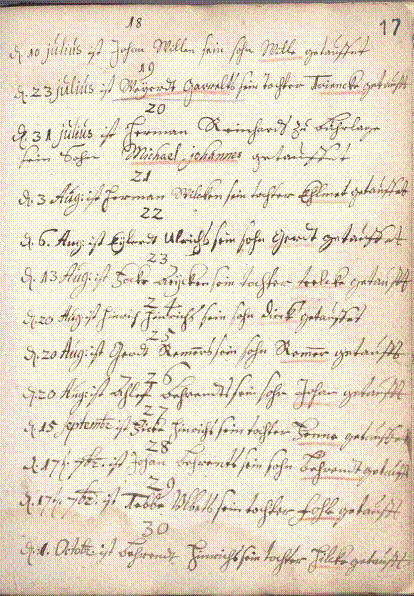 18
17
d. 10 julius ist Johan Willen sein sohn Wille getauffet
19
d. 23 julius ist Weyerdt Garrelts sein tochter Trincke getaufft
20
d. 31 julius ist Herman Reinhards zu
sein Sohn Michael Johannes getauffet
21
d. 3 Aug: ist Herman Wilcken sein tochter getauffet
22
d. 6. Aug: ist Eylerdt Ulrichs sein sohn Gerdt getauffet
23
d. 13 Aug: ist sein tochter getaufft
24
d. 20 Aug ist Hinrich Hinrichs sein sohn dirck getauffet
25
d. 20 Aug ist Gerdt Remmers sein sohn Remmer getaufft
26
d. 20 Aug: ist Behrendts sein sohn Johan getaufft
27
d. 15 septembr ist Hinrichs sein tochter getauffet
28
d. 17 7br. ist Johan Behrendts sein sohn Behrendt getaufft
29
d. 17 7br. ist sein tochter getaufft
30
d. 1. Octobr. ist Behrendt Hinrichs sein tochter Hilcke getaufft